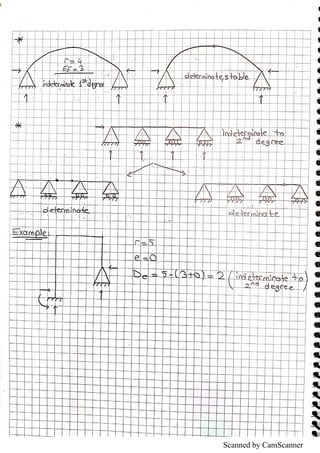 *
r=4
EE=3
indeterminate 1st degree
determinate, stable
*
Indeterminate to
2nd degree
determinate
determinate
Example:
r=5
e=0
De = 5-(3+0) = 2 (indeterminate to
2nd degree)
Scanned by CamScanner